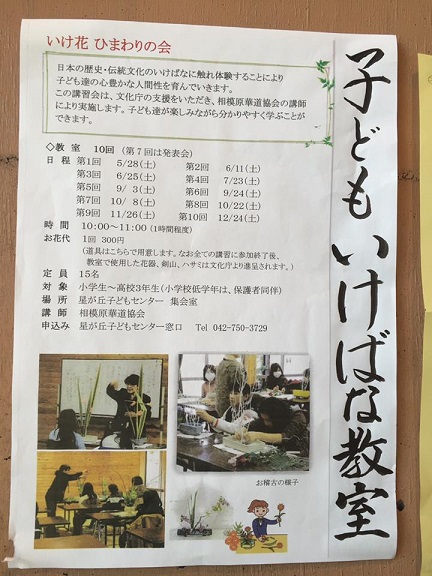 子どもいけばな教室
いけ花 ひまわりの会
日本の歴史・伝統文化のいけばなに触れ体験することにより
子ども達の心豊かな人間性を育んでいきます。
この講習会は、文化庁の支援をいただき、相模原華道協会の講師
により実施します。子ども達が楽しみながら分かりやすく学ぶことが
できます。
◇教 室 10回 (第7回は発表会)
日 程 第1回 5/28(土) 第2回 6/11(土)
第3回 6/25(土) 第4回 7/23(土)
第5回 9/ 3(土) 第6回 9/24(土)
第7回 10/ 8(土) 第8回 10/22(土)
第9回 11/26(土) 第10回 12/24(土)
時 間 10:00~11:00 (1時間程度)
お花代 1回 300円
(道具はこちらで用意します。なお全ての講習に参加終了後、
教室で使用した花器、剣山、ハサミは文化庁より進呈されます。)
定 員 15名
対 象 小学生~高校3年生(小学校低学年は、保護者同伴)
場 所 星が丘子どもセンター 集会室
講 師 相模原華道協会
申込み 星が丘子どもセンター窓口 Tel 042-750-3729
お稽古の様子